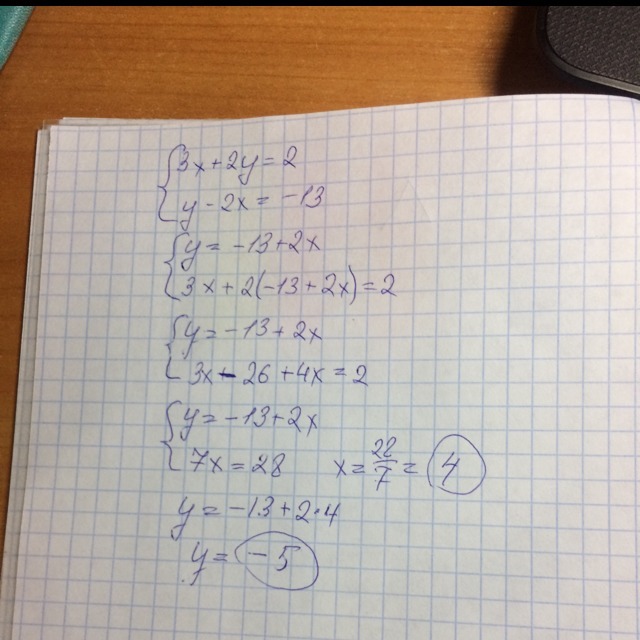 {3x+2y=2
y-2x=-13
{y=-13+2x
3x+2(-13+2x)=2
{y=-13+2x
3x-26+4x=2
{y=-13+2x
7x=28 x=28/7=4
y=-13+2·4
y=-5